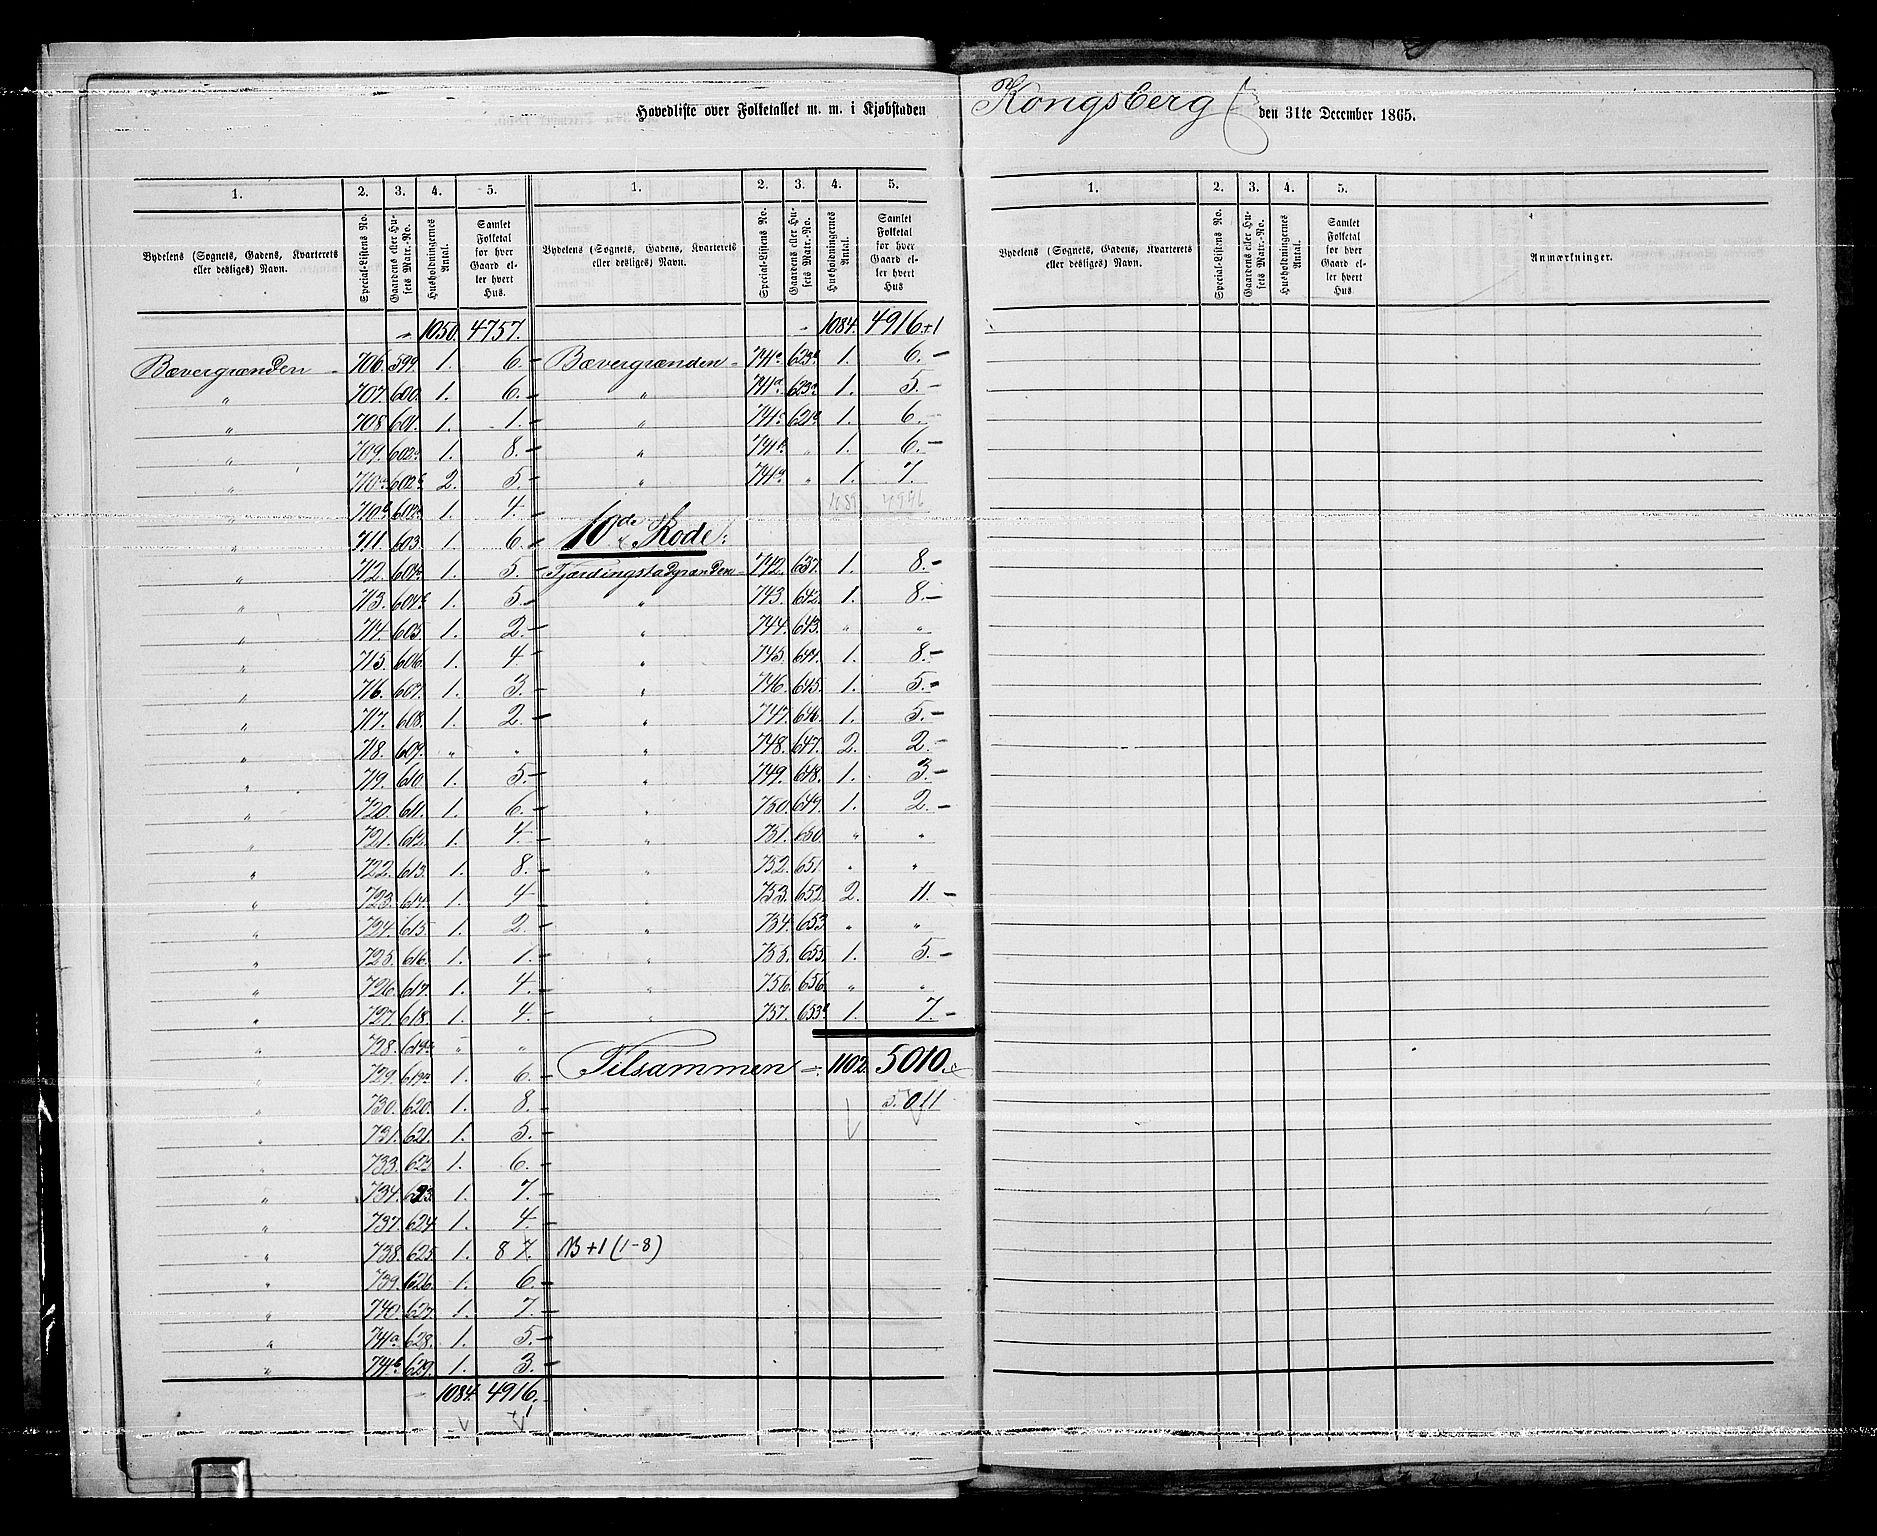 Hovedliste over Folketallet m. m. i Kjøbstaden Kongsberg den 31te December 1865.
1. 2. 3. 4. 5. 1. 2. 3. 4. 5.
Bydelens (Sognets, Gadens, Kvarterets eller desliges) Navn. Special-Listens No. Gaardens eller Husets Matr.-No. Husholdningernes Antal. Samlet Folketal for hver Gaard eller hvert Hus.
Bydelens (Sognets, Gadens, Kvarterets eller desliges) Navn. Special-Listens No. Gaardens eller Husets Matr.-No. Husholdningernes Antal. Samlet Folketal for hver Gaard eller hvert Hus
1050. 4757.
Bævergrænden 706. 599. 1. 6.
" 707. 600. 1. 6.
" 708 601. 1. 1.
" 709. 602a 1. 8.
" 710a 602b 2. 5.
" 710b 1. 4.
" 711. 603. 1. 6.
" 712. 604a 1. 5.
" 713. 604b 1. 5.
" 714. 605. 1. 2.
" 715. 606. 1. 4.
" 716. 607. 1. 3.
" 717. 608. 1. 2.
" 718. 609. " "
" 719. 610. 1. 5.
" 720. 611. 1. 6.
" 721. 612. 1. 4.
" 722. 613. 1. 8.
" 723. 614. 1. 4
" 724. 615. 1. 2.
" 725. 616. 1. 1.
" 726. 617. 1. 4.
" 727. 618. 1. 4.
" 728. 619a " "
" 729. 619b 1. 6.
" 730. 620. 1. 8.
" 731. 621. 1. 5.
" 733. 1. 6.
" 734. 623. 1. 7.
" 737. 624. 1. 4.
" 738. 625. 1. 8 7. NB +1 (1-8)
" 739. 626. 1. 6.
" 740. 627. 1. 7.
" 741a 628. 1. 5.
" 741b 629. 1. 3.
1084. 4916.
+1
1084. 4916+1
Bævergrænden 1. 6.
" 1. 5.
" 1. 6.
" 1. 6.
" 1. 7.
1089 4946
10de Rode:
Fjærdingstadgrænden 742. 637. 1. 8.
" 743. 642. 1. 8.
" 744. 643. " "
" 745. 644. 1. 8.
" 746. 645. 1. 5.
" 747. 646. 1. 5.
" 748. 647. 2. 2.
" 749. 648. 1. 3.
" 750. 649. 1. 2.
" 751. 650. " "
" 752. 651. " "
" 753. 652. 2. 11.
" 754. 653. " "
" 755. 655. 1. 5.
" 756. 656. " "
" 757. 1. 7.
Tilsammen 1102. 5010.
5.011
1. 2. 3. 4. 5.
Bydelens (Sognets, Gadens, Kvarterets eller desliges) Navn. Special-Listens No. Gaardens eller Husets Matr.-No. Husholdningernes Antal. Samlet Folketal for hver Gaard eller hvert Hus Anmærkninger.